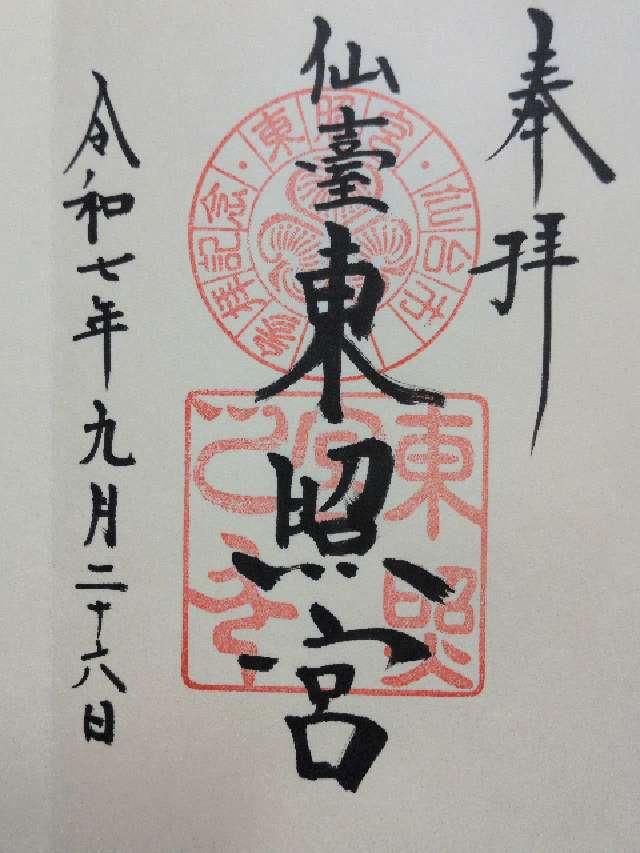 奉拝
仙臺東照宮
東照宮・仙台市参拝記念・
東照宮
令和七年九月二十六日